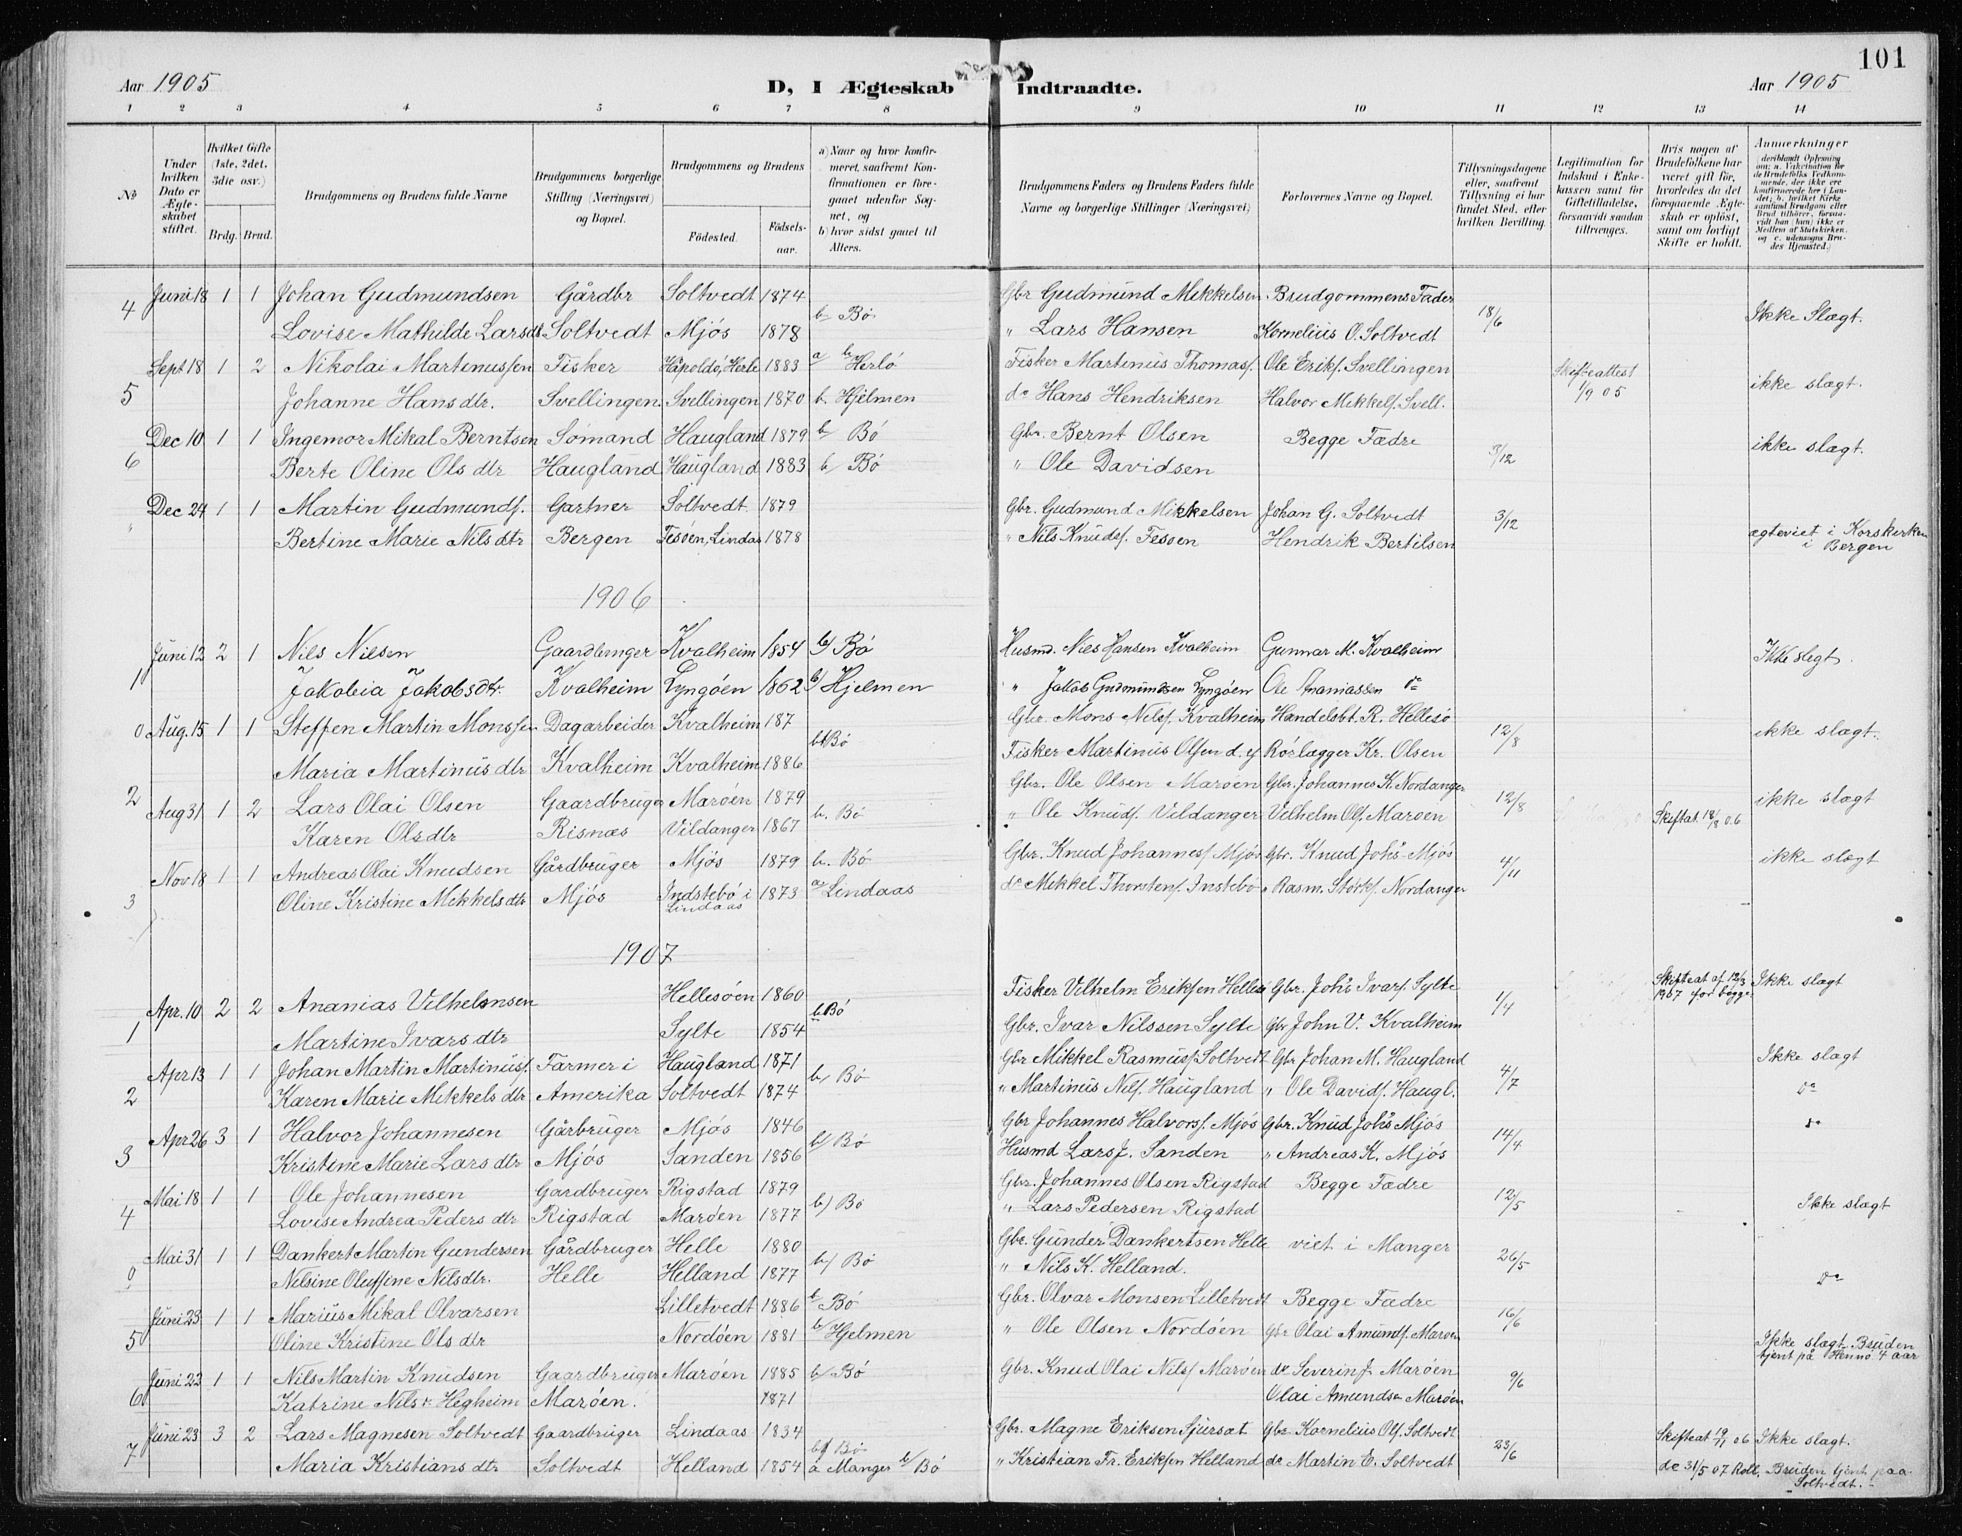 101
Aar 1905 D, I Ægteskab Indtraadte. Aar 1905
1 2 3 4 5 6 7 8 9 10 11 12 13 14
No
Under hvilken Dato er Ægteskabet stiftet.
Hvilket Gifte (1ste, 2det, 3die osv.)
Brdg. Brud.
Brudgommens og Brudens fulde Navne
Brudgommens borgerlige Stilling (Næringsvei) og Bopæl.
Brudgommens og Brudens
Födested. Födsels-aar.
a) Naar og hvor konfirmeret, saafremt Konfirmationen er foregaaet udenfor Sognet, og
b) hvor sidst gaaet til Alters.
Brudgommens Faders og Brudens Faders fulde Navne og borgerlige Stillinger (Næringsvei)
Forlovernes Navne og Bopæl.
Tillysningsdagene eller, saafremt Tillysning ei har fundet Sted, efter hvilken Bevilling.
Legitimation for Indskud i Enkekassen samt for Giftetilladelse, forsaavidt saadan tiltrænges.
Hvis nogen af Brudefolkene har været gift för, hvorledes da det foregaaende Ægteskab er oplöst, samt om lovligt Skifte er holdt.
Anmærkninger
4 Juni 18 1 1 Johan Gudmundsen Gårdbr Soltvedt 1874 b Bö Gbr Gudmund Mikkelsen Brudgommens Fader 18/6 Ikke Slægt.
Lovise Mathilde Larsdt Soltvedt Mjös 1878 " Lars Hansen Kornelius O. Soltvedt
5 Sept 18 1 2 Nikolai Martinussen Fisker Håpoldö, Herlø 1883 a b Herlö Fisker Martinus Thomasf. Ole Erikf. Svellingen Skifteattest 1/9 05 ikke slægt.
Johanne Hansdtr. Svellingen Svellingen 1870 b. Hjelmen do Hans Hendriksen Halvor Mikkelf. Svell.
6 Dec 10 1 1 Ingemor Mikal Berntsen Sömand Haugland 1879 b Bö Gbr. Bernt Olsen Begge Fædre 3/12 ikke slægt.
Berte Oline Olsdtr Haugland Haugland 1883 b Bö " Ole Davidsen
" Dec 24 1 1 Martin Gudmundf. Gartner Soltvedt 1879 Gbr. Gudmund Mikkelsen Johan G. Soltvedt 3/12 ægteviet i Korskirken i Bergen
Bertine Marie Nilsdtr Bergen Fesöen, Lindås 1878 " Nils Knudsf. Fesoen Hendrik Bertilsen
1906
1 Juni 12 2 1 Nils Nilsen Gaardbruger Kvalheim 1854 b/ Bö Husmd. Niels Hansen Kvalheim Gunnar M. Kvalheim Ikke slegt.
Jakobia Jakobsdtr. Kvalheim Lyngöen 1862 b/ Hjelmen " Jakob Gudmundsen Lyngöen Ole Ananiassen do
0 Aug. 15 1 1 Steffen Martin Monssen Dagarbeider Kvalheim 187 b/ Bö Gbr. Mons Nilsf. Kvalheim Handelsbt. R. Hellesö 12/8 ikke slægt.
Maria Martinusdtr Kvalheim Kvalheim 1886 Fisker Martinus Olsen d. ey Rörlægger Kr. Olsen
2 Aug 31 1 2 Lars Olai Olsen Gaardbruger Maröen 1879 b. Bö Gbr. Ole Olsen Maröen Gbr. Johannes K. Nordanger 12/8 Skiftat. 18/8 06 ikke slægt
Karen Olsdtr Risnæs Vildanger 1867 " Ole Knudf. Vildanger Vilhelm Olf. Maröen
3 Nov 18 1 1 Andreas Olai Knudsen Gårdbruger Mjös 1879 b. Bö Gbr. Knud Johannesf. Mjös Gbr. Knud Johs Mjös 4/11 ikke slægt
Oline Kristine Mikkelsdtr Mjös Indstebö i Lindaas 1873 a/ Lindaas do Mikkel Thorstenf. Instebö " Rasm. Störkf. Nordanger
1907
1 Apr. 10 2 2 Ananias Vilhelmsen Hellesöen 1860 b. Bö Fisker Vilhelm Eriksen Helles Gbr. Johs Ivarf. Sylte 1/4 Skifteat af 12/3 1907 for begge Ikke slægt
Martine Ivarsdtr Sylte 1854 Gbr. Ivar Nilssen Sylte Gbr John V. Kvalheim
2 Apr 13 1 1 Johan Martin Martinusf. Farmer i Haugland 1871 b/ Bö Gbr Mikkel Rasmusf. Soltvedt Gbr Johan M. Haugland 4/7 Ikke slagt
Karen Marie Mikkelsdtr Amerika Soltvedt 1874 " Martinus Nilsf. Haugland " Ole Davidf. Haugl. do
3 Apr 26 3 1 Halvor Johannesen Gårbruger Mjös 1846 b/ Bö Gbr Johannes Halvorsf. Mjös Gbr. Knud Johs Mjös 14/4 do
Kristine Marie Larsdtr Mjös Sanden 1856 Husmd Lars J. Sanden " Andreas K. Mjös
4 Mai 18 1 1 Ole Johannesen Gardbruger Rigstad 1879 b/ Bö Gbr. Johannes Olsen Rigstad Begge Fædre 12/5 Ikke slagt
Lovise Andrea Pedersdtr Rigstad Maröen 1877 " Lars Pedersen Rigstad
0 Mai 31 1 1 Dankert Martin Gundersen Gårdbruger Helle 1880 b/ Bö Gbr. Gunder Dankertsen Helle viet i Manger 26/5 do
Nilsine Oluffine Nilsdtr. Helle Helland 1877 " Nils K. Helland.
5 Juni 23 1 1 Marius Mikal Olvarsen Lilletvedt 1886 b Bö Gbr. Olvar Monsen Lilletvedt Begge Fædre 16/6
Oline Kristine Olsdtr Nordöen 1881 b/ Hjelmen " Ole Olsen Nordöen Gbr Olai Amundf. Maröen Ikke slagt. Bruden tjent på Hennö 4 aar
6 Juni 23 1 1 Nils Martin Knudsen Gaardbruger Maröen 1885 b/ Bö Gbr. Knud Olai Nilsf Maröen do Severin J. Maröen 9/6
Katrine Nilsdr Hegheim Maröen. 1871 Olai Amundsen Maröen
7 Juni 23 3 2 Lars Magnesen Soltvedt Gaardbruger Lindaas 1834 b/ Bö Gbr. Magne Eriksen Sjursæt Gbr. Kornelius Olf. Soltvedt 23/6 Skifteat 19/1 06 Ikke slagt.
Maria Kristiansdtr Soltvedt Helland 1854 a Manger b/ Bö " Kristian Fr. Eriksen Helland do Martin E. Soltvedt do 31/5 07 Roll. Bruden tjent paa Soltvedt.